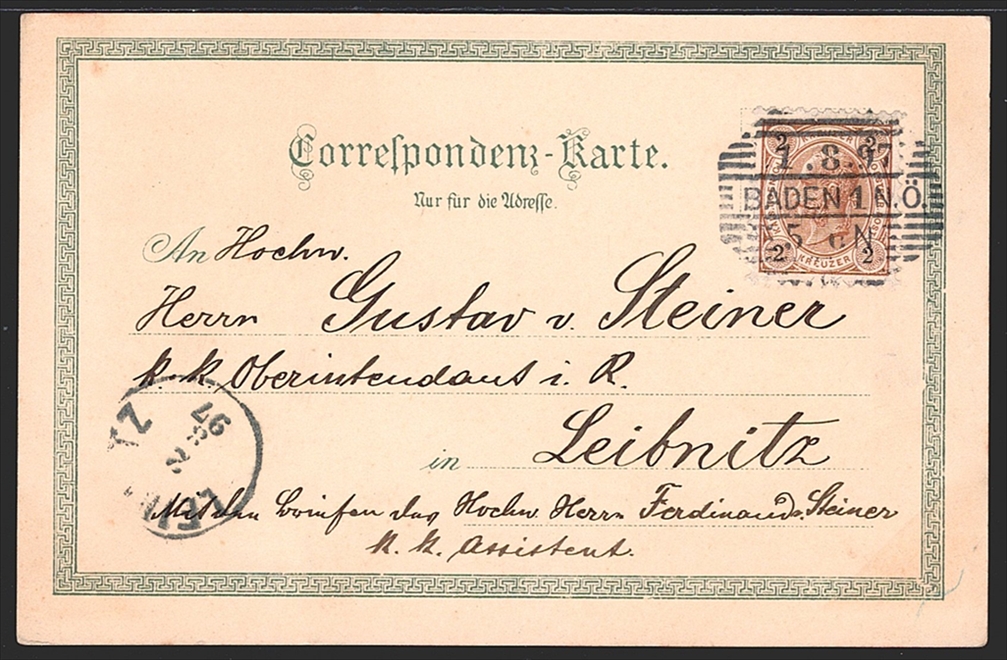 Correſpondenz-Karte.
Nur für die Adreſſe.
2 KREUZER 2
1.8.97
BADEN 1 N.Ö.
5 N
2 KREUZER 2
An Hochw.
Herrn Gustav v. Steiner
k. k. Oberintendant i. R.
in Leibnitz
97
8
2
TZ
LEI
Hochw. Herrn Ferdinand v. Steiner
k. k. Assistent.